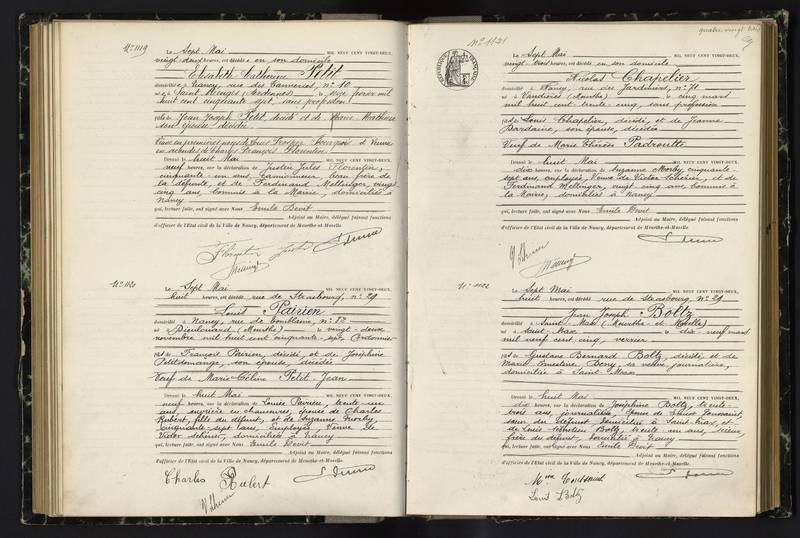 N° 1119
Le Sept Mai MIL NEUF CENT VINGT-DEUX,
vingt deux heures, est décédée en son domicile
Elisabeth Catherine Petit
domiciliée à Nancy, rue des Tanneries, n° 10
née à Saint Mengès (Ardennes) le seize février mil
huit cent cinquante sept, sans profession
fille de Jean Joseph Petit, décédé et de Marie Mathieu
son épouse, décédée
Veuve en premières noces de Louis Prosper Bourgeois et Veuve
en secondes de Charles François Florentin
Dressé le huit Mai MIL NEUF CENT VINGT-DEUX,
neuf heures, sur la déclaration de Justin Jules Florentin,
cinquante un ans, camionneur, beau frère de
la défunte, et de Ferdinand Mellinger, vingt
cinq ans, commis à la Mairie, domiciliés à
Nancy
qui, lecture faite, ont signé avec Nous Emile Bevit
Adjoint au Maire, délégué faisant fonctions
d'officier de l'État civil de la Ville de Nancy, département de Meurthe-et-Moselle.
Florentin Justin
N° 1120
Le Sept Mai MIL NEUF CENT VINGT-DEUX,
huit heures, est décédé rue de Strasbourg, n° 29
Louis Pairien
domicilié à Nancy, rue de Tomblaine, n° 82
né à Dieulouard (Meurthe) le vingt-deux
novembre mil huit cent cinquante-sept, Cordonnier
fils de François Pairien, décédé, et de Joséphine
Petitdemange, son épouse, décédée
Veuf de Marie Céline Petit Jean
Dressé le huit Mai MIL NEUF CENT VINGT-DEUX,
neuf heures, sur la déclaration de Louise Pairien, trente-un
ans, ouvrière en chaussures, épouse de Charles
Hubert, fille du défunt, et de Suzanne Morby
cinquante sept ans, Employée, Veuve de
Victor Scherier, domiciliées à Nancy
qui, lecture faite, ont signé avec Nous Emile Bevit
Adjoint au Maire, délégué faisant fonctions
d'officier de l'État civil de la Ville de Nancy, département de Meurthe-et-Moselle.
Charles Hubert
quatre vingt trois
N° 1121
Le Sept Mai MIL NEUF CENT VINGT-DEUX,
vingt-trois heures, est décédé en son domicile
Nicolas Chapelier
domicilié à Nancy, rue des Jardiniers, n° 71
né à Vandières (Meurthe) le cinq mars
mil huit cent trente-cinq, sans profession
fils de Louis Chapelier, décédé, et de Jeanne
Bardaine, son épouse, décédée
Veuf de Marie Thérèse Padroutte
Dressé le huit Mai MIL NEUF CENT VINGT-DEUX,
dix heures, sur la déclaration de Suzanne Morby, cinquante-
sept ans, employée, Veuve de Victor Scherier, et de
Ferdinand Mellinger, vingt cinq ans, commis à
la Mairie, domiciliés à Nancy
qui, lecture faite, ont signé avec Nous Emile Bevit
Adjoint au Maire, délégué faisant fonctions
d'officier de l'État civil de la Ville de Nancy, département de Meurthe-et-Moselle.
N° 1122
Le Sept Mai MIL NEUF CENT VINGT-DEUX,
huit heures, est décédé rue de Strasbourg, n° 29
Jean Joseph Boltz
domicilié à Saint-Max (Meurthe et Moselle)
né à Saint-Max le dix-neuf mars
mil neuf cent cinq, verrier
fils de Gustave Bernard Boltz, décédé, et de
Marie Beny, sa veuve, journalière,
domiciliée à Saint-Max
Dressé le huit Mai MIL NEUF CENT VINGT-DEUX,
dix heures, sur la déclaration de Joséphine Boltz, trente-
trois ans, journalière, épouse de Ernest Toussaint
sœur du défunt domiciliée à Saint-Max, et
de Louis Boltz, trente un ans,
frère du défunt, domicilié à Nancy
qui, lecture faite, ont signé avec Nous Emile Bevit
Adjoint au Maire, délégué faisant fonctions
d'officier de l'État civil de la Ville de Nancy, département de Meurthe-et-Moselle.
Mme Toussaint
Louis Boltz